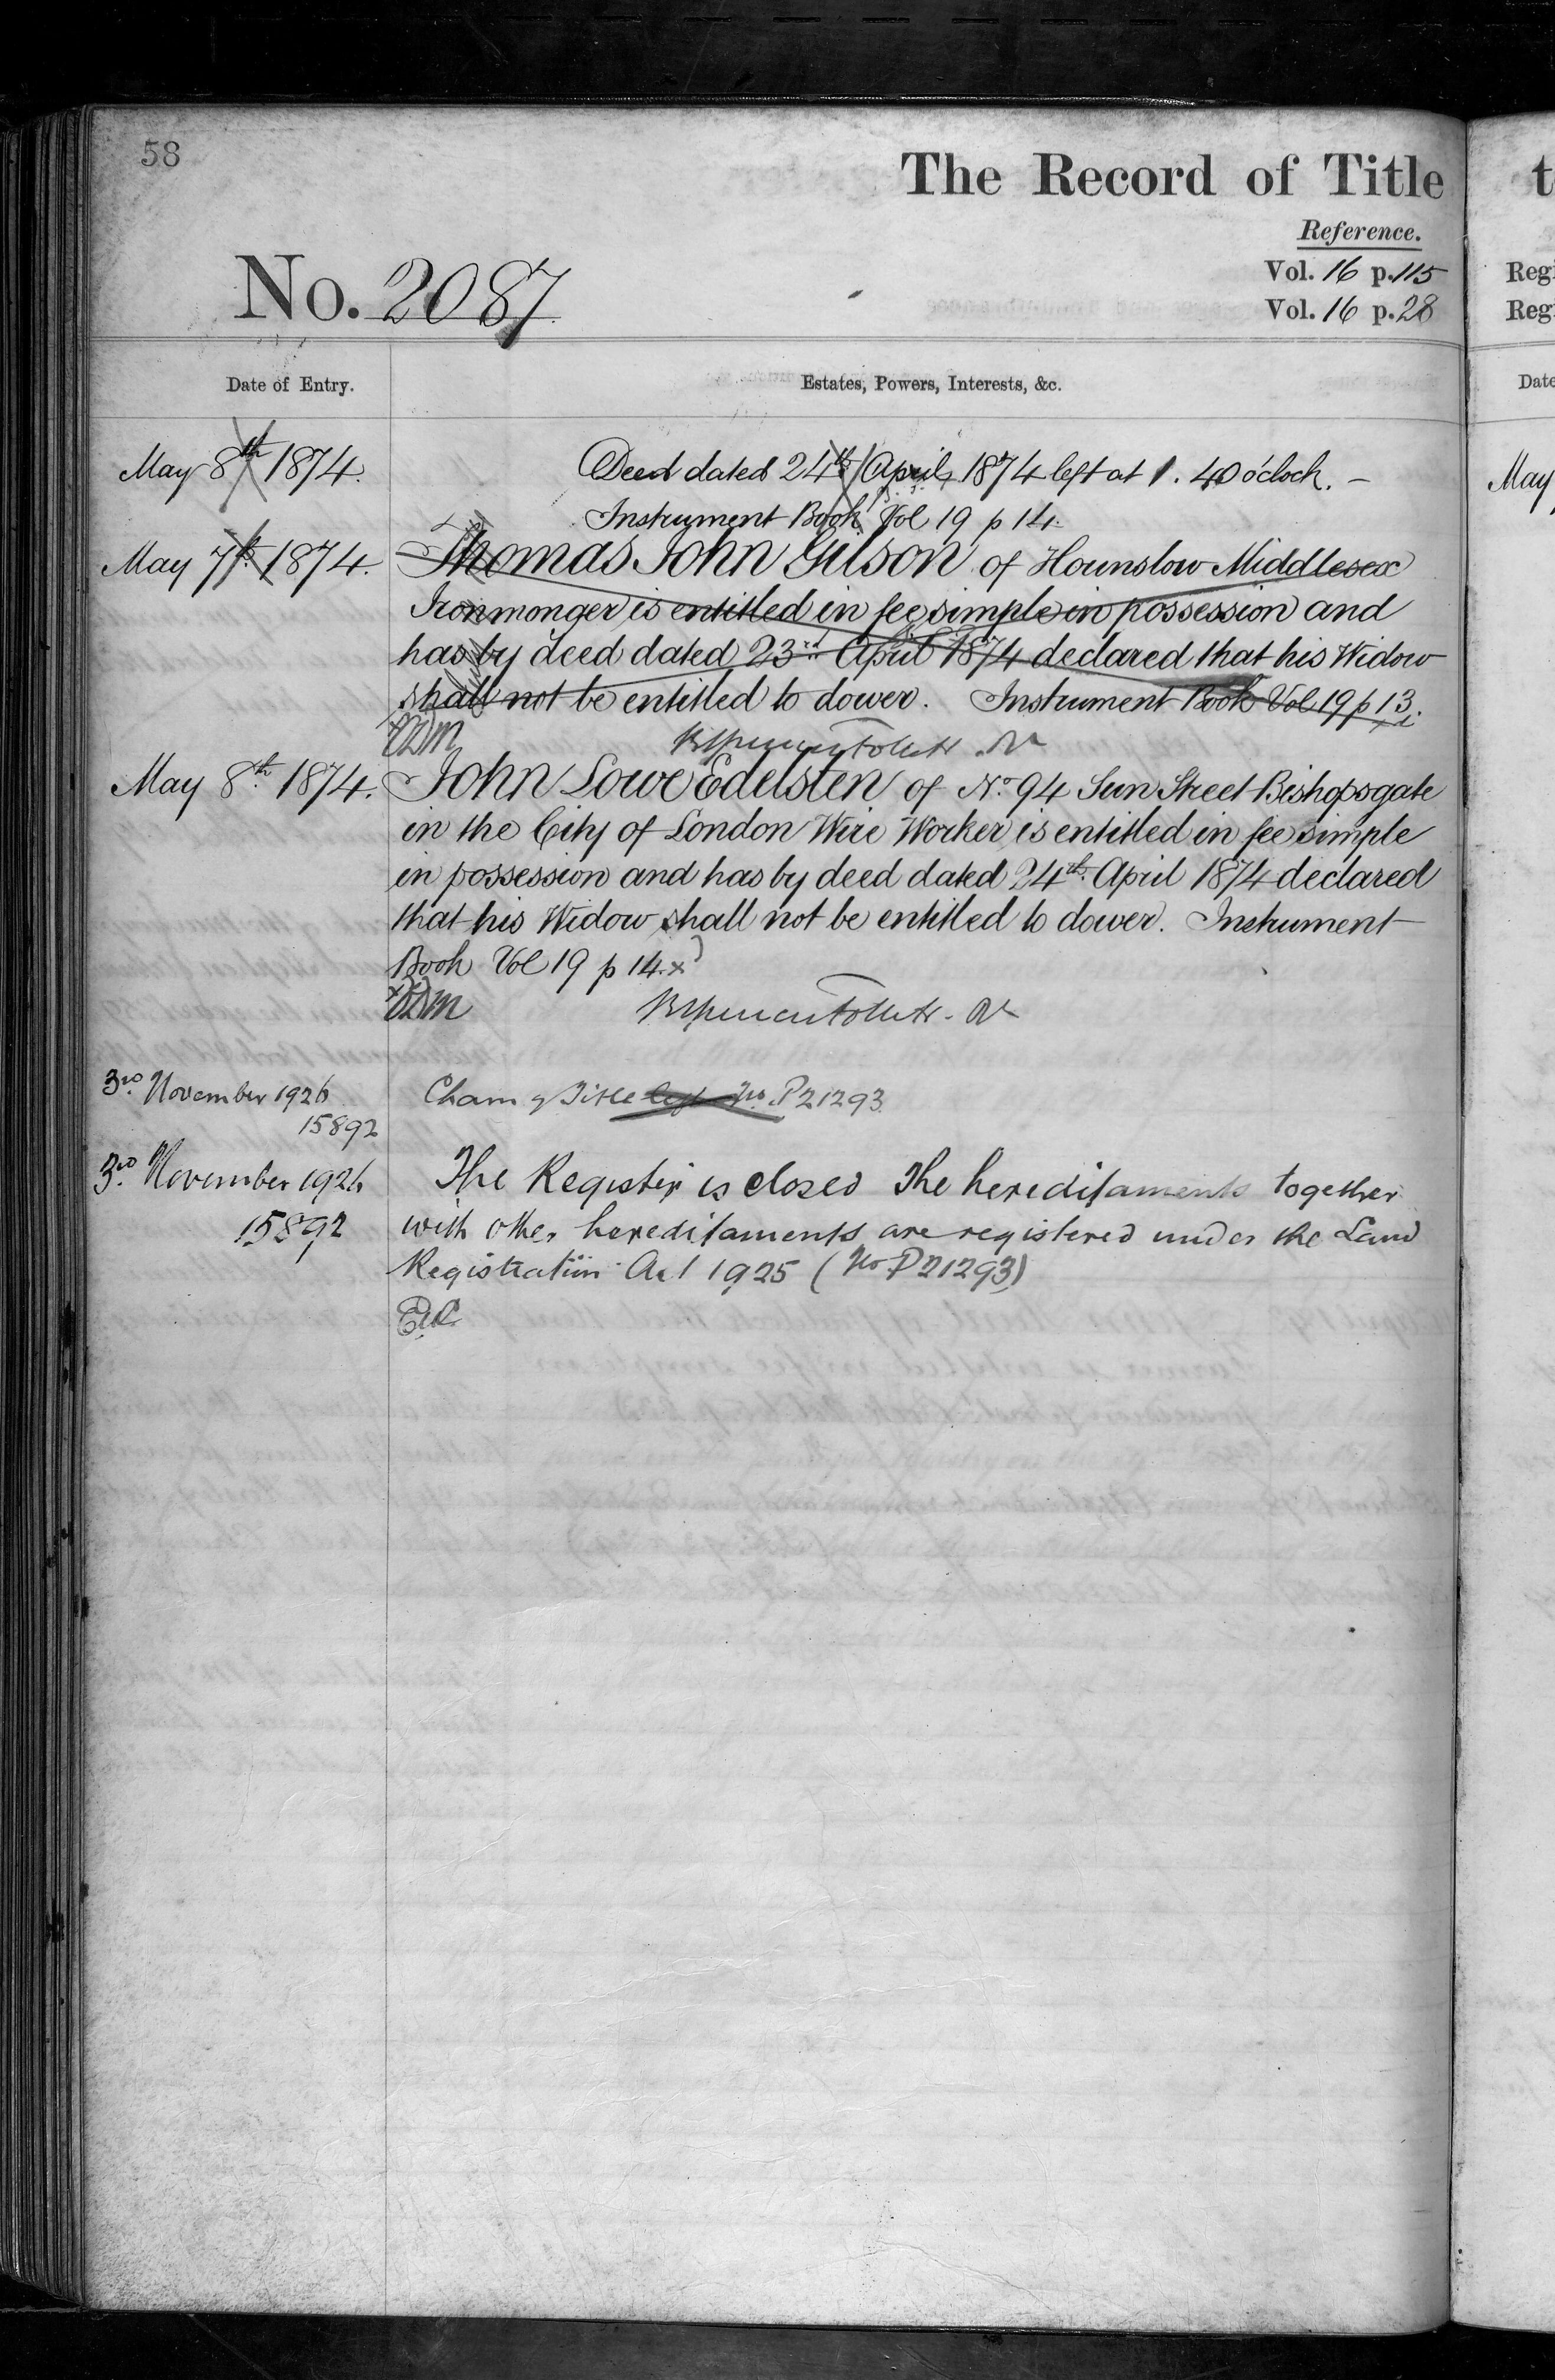 58
The Record of Title
Reference.
Vol. 16 p. 115
Vol. 16 p. 28
No. 2087
Date of Entry.
Estates, Powers, Interests, &c.
May 8th 1874.
Deed dated 24th April 1874 left at 1. 40 o'clock. –
Instrument Book Vol 19 p 14.
May 7th 1874.
Thomas John Gilson of Hounslow Middlesex
Ironmonger is entitled in fee simple in possession and
has by deed dated 23rd April 1874 declared that his Widow
shall not be entitled to dower. Instrument Book Vol 19 p 13.
May 8th 1874.
John Lowe Edelsten of No. 94 Sun Street Bishopsgate
in the City of London Wire Worker is entitled in fee simple
in possession and has by deed dated 24th April 1874 declared
that his Widow shall not be entitled to dower. Instrument
Book Vol 19 p 14. x
3rd November 1926
15892
Title No. P21293
3rd November 1926
15892
The Register is closed The hereditaments together
with other hereditaments are registered under the Land
Registration Act 1925 (No P21293)
t
Reg
Reg
Date
May